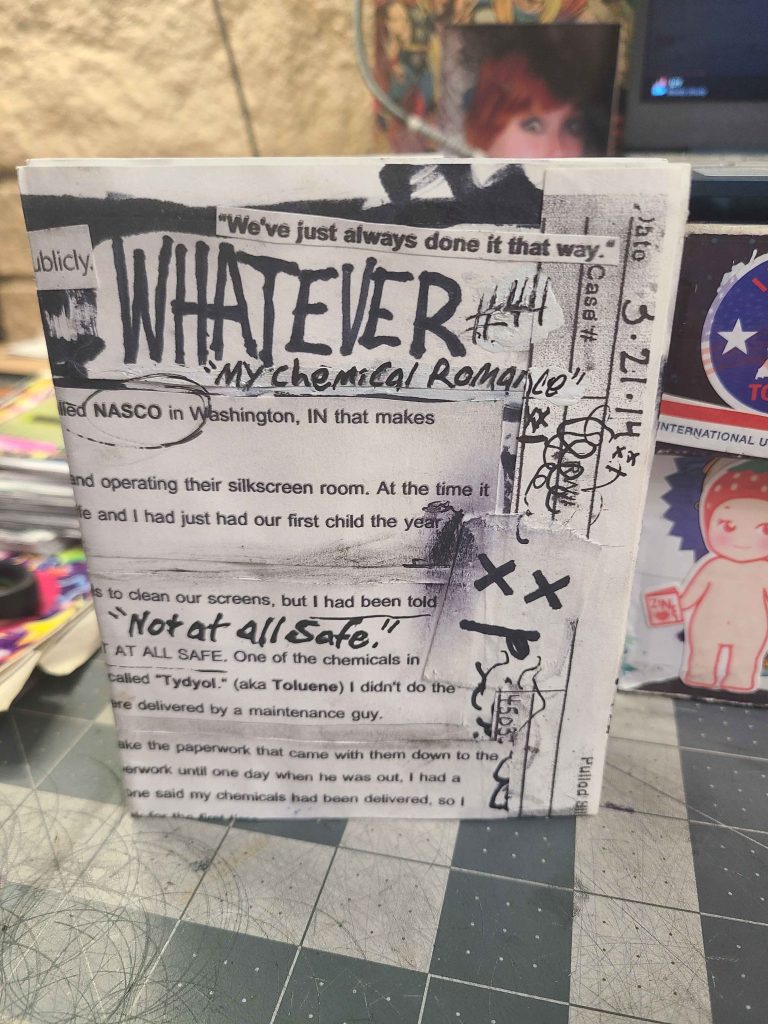 "We've just always done it that way."
ublicly.
WHATEVER #44
"My Chemical Romance"
lled NASCO in Washington, IN that makes
and operating their silkscreen room. At the time it
fe and I had just had our first child the year
s to clean our screens, but I had been told
"Not at all Safe."
T AT ALL SAFE. One of the chemicals in
called "Tydyol." (aka Toluene) I didn't do the
are delivered by a maintenance guy.
ake the paperwork that came with them down to the
erwork until one day when he was out, I had a
one said my chemicals had been delivered, so I
for the first time
Case #
Date 3.21.14
Pulled
INTERNATIONAL U
ZINE